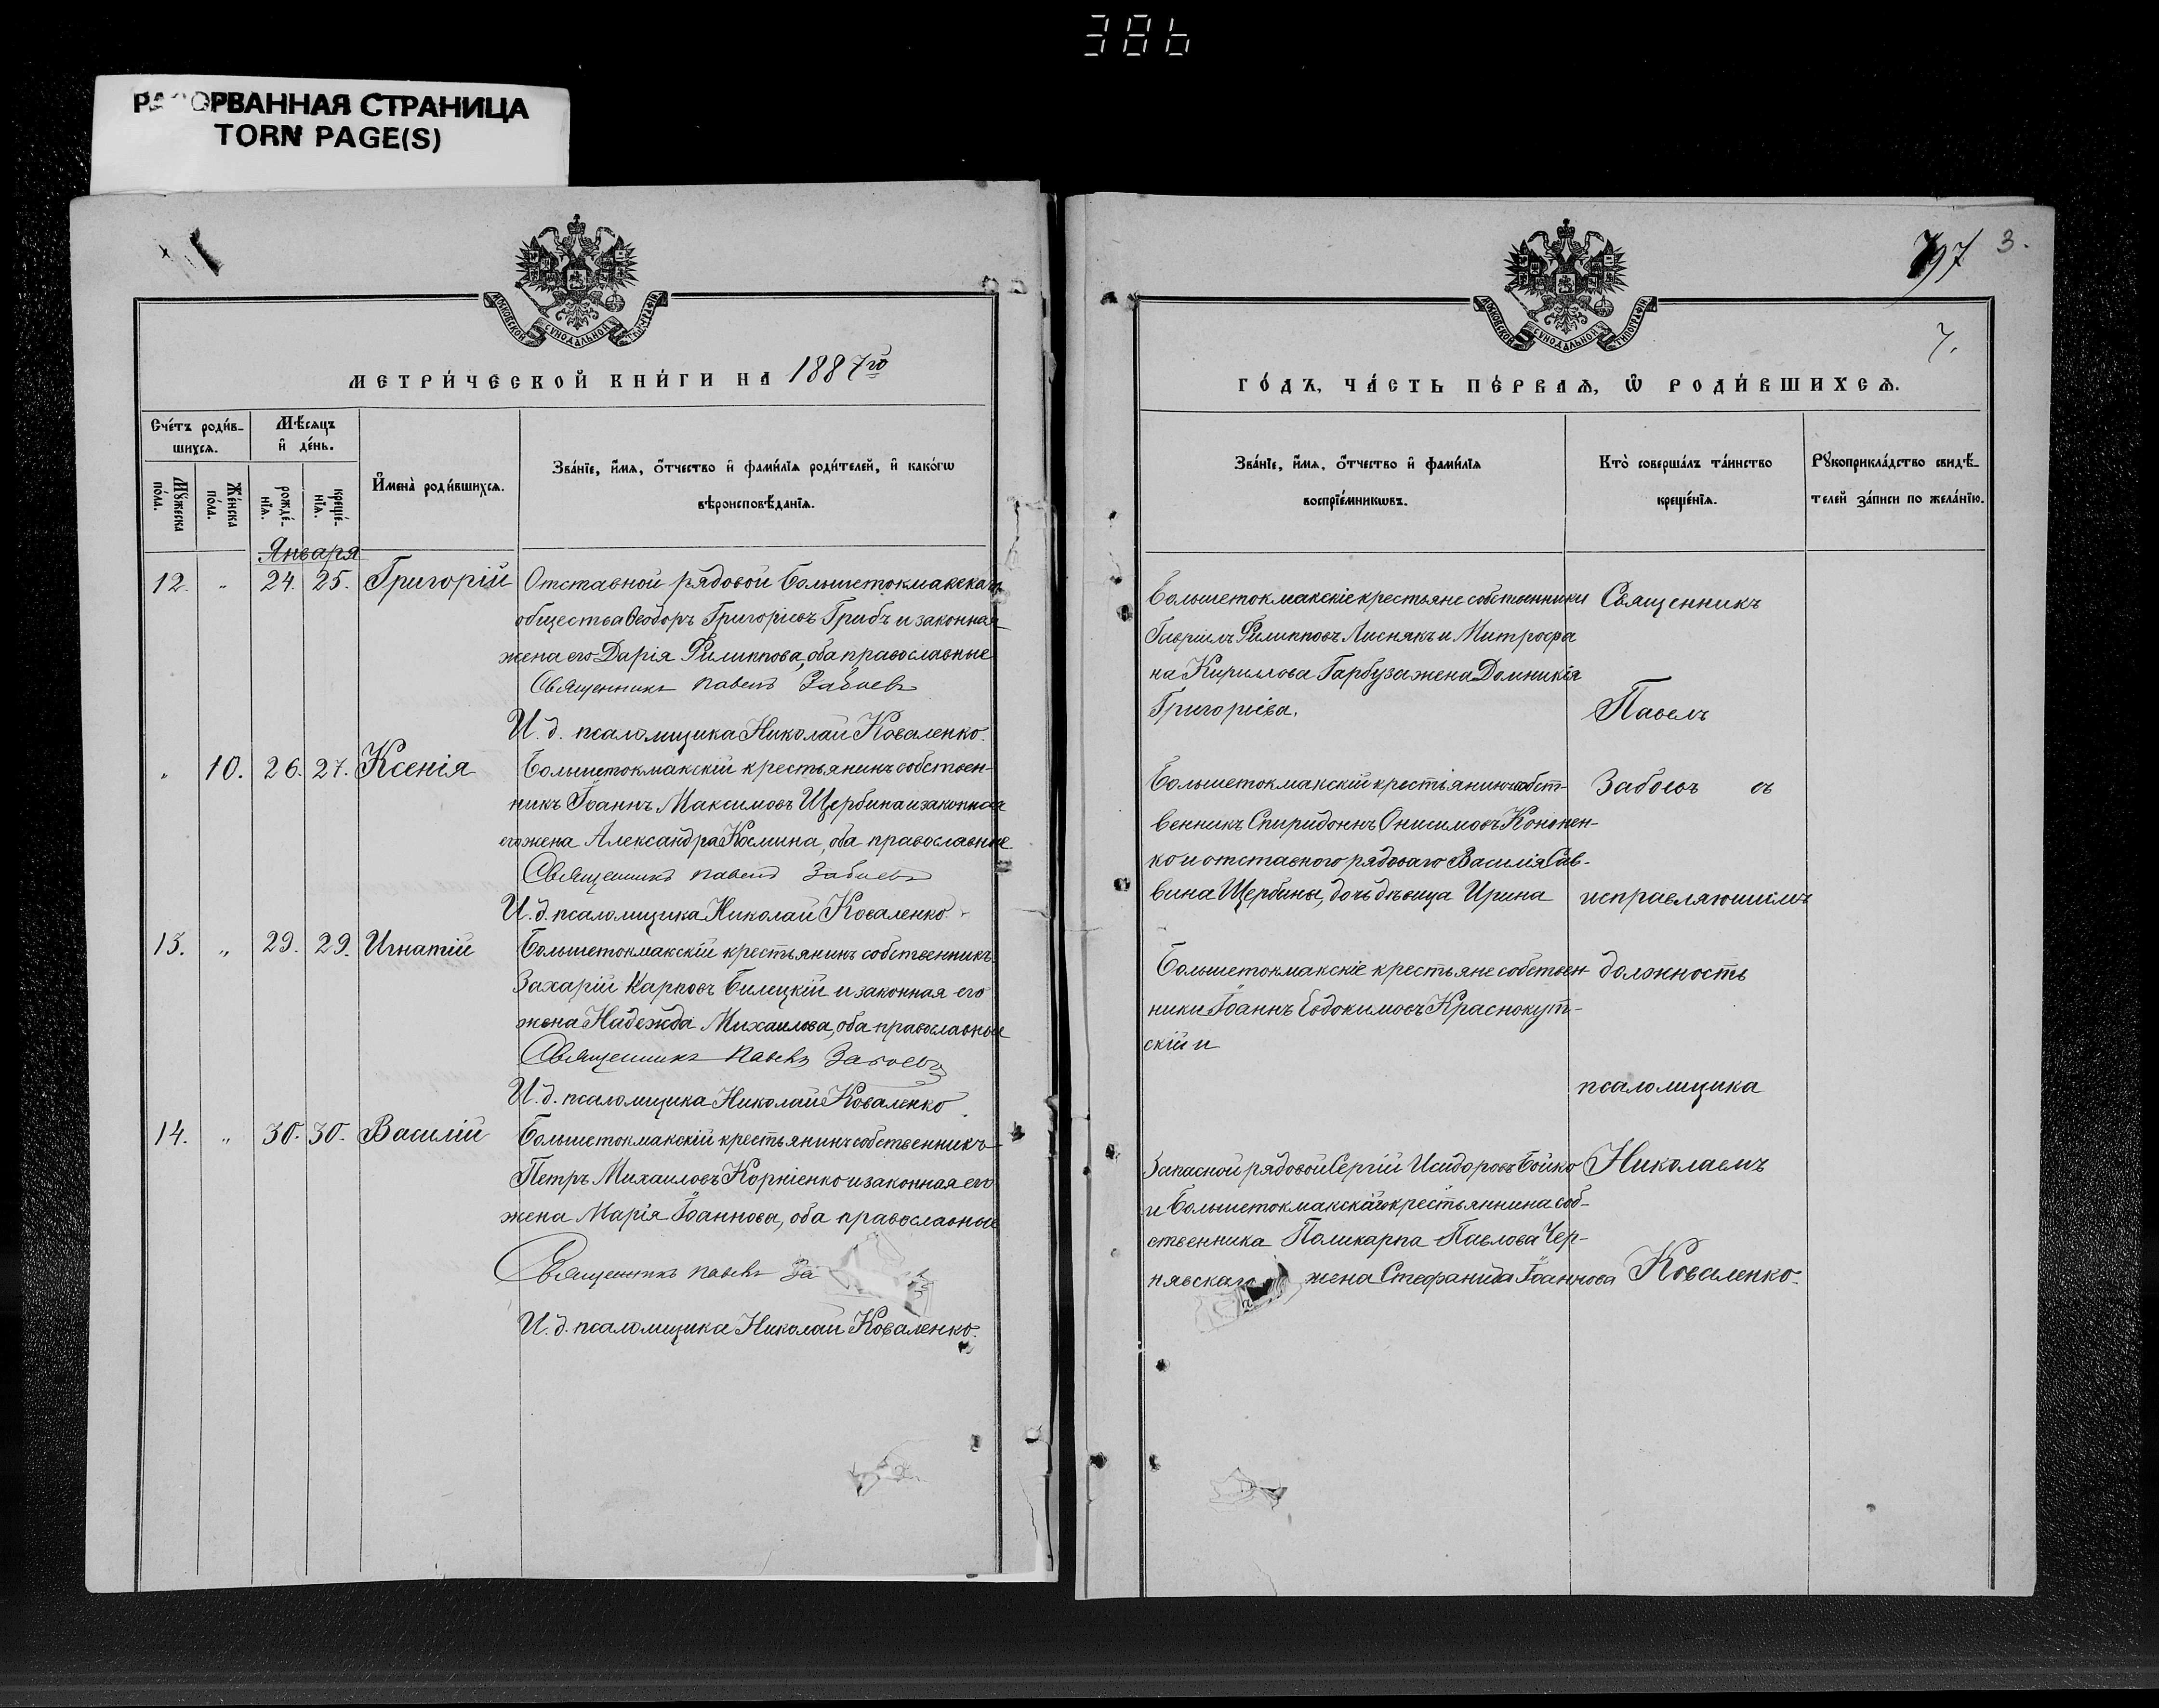 386
РАЗОРВАННАЯ СТРАНИЦА
TORN PAGE(S)
МОСКОВСКОЙ СУНОДАЛЬНОЙ ТИПОГРАФІИ
МЕТРИ́ЧЕСКОЙ КНИ́ГИ НА 1887го
Сче́тъ роди́в-
шихся.
Мѣ́сяцъ
и҆ де́нь.
Му́жеска по́ла.
Же́нска по́ла.
рожде́-
нїя.
креще́-
нїя.
И҆мена̀ роди́вшихся.
Зва́нїе, и҆́мя, ѻ҆́тчество и҆ фами́лїя роди́телей, и҆ како́гѡ
вѣроисповѣ́данїя.
Января
12. " 24. 25. Григорій Отставной рядовой Большетокмакскаго
общества Ѳеодоръ Григоріевъ Грибъ и законная
жена его Дарія Филиппова, оба православные
Священникъ Павелъ Забоевъ
И. д. псаломщика Николай Коваленко.
" 10. 26. 27. Ксенія Большетокмакскій крестьянинъ собствен-
никъ Іоаннъ Максимовъ Щербина и законная
его жена Александра Космина, оба православные
Священникъ Павелъ Забоевъ
И. д. псаломщика Николай Коваленко.
13. " 29. 29. Игнатій Большетокмакскій крестьянинъ собственникъ
Захарій Карповъ Билецкій и законная его
жена Надежда Михаилова, оба православные
Священникъ Павелъ Забоевъ
И. д. псаломщика Николай Коваленко.
14. " 30. 30. Василій Большетокмакскій крестьянинъ собственникъ
Петръ Михаиловъ Корніенко и законная его
жена Марія Іоаннова, оба православные
Священникъ Павелъ За
И. д. псаломщика Николай Коваленко.
797 3.
7.
МОСКОВСКОЙ СУНОДАЛЬНОЙ ТИПОГРАФІИ
ГО́ДЪ, ЧА́СТЬ ПЕ́РВАЯ, Ѽ РОДИ́ВШИХСЯ.
Зва́нїе, и҆́мя, ѻ҆́тчество и҆ фами́лїя
воспрїе́мникѡвъ.
Кто̀ соверша́лъ та́инство
креще́нїя.
Рꙋкоприкла́дство свидѣ́-
телей за́писи по жела́нїю.
Большетокмакскіе крестьяне собственники Священникъ
Гавріилъ Филипповъ Лиснякъ и Митрофа
на Кириллова Гарбуза жена Домникія
Григоріева. Павелъ
Большетокмакскій крестіянинъ собст- Забоевъ съ
венникъ Спиридонъ Онисимовъ Кононен-
ко и отставного рядоваго Василія Сав-
вина Щербины, дочь дѣвица Ирина исправляющимъ
Большетокмакскіе крестьяне собствен- должность
ники Іоаннъ Евдокимовъ Краснокут-
скій и
псаломщика
Запасной рядовой Сергій Исидоровъ Бойко Николаемъ
и Большетокмакскаго крестьяннина соб-
ственника Поликарпа Павлова Чер-
нявскаго жена Стефанида Іоаннова Коваленко.